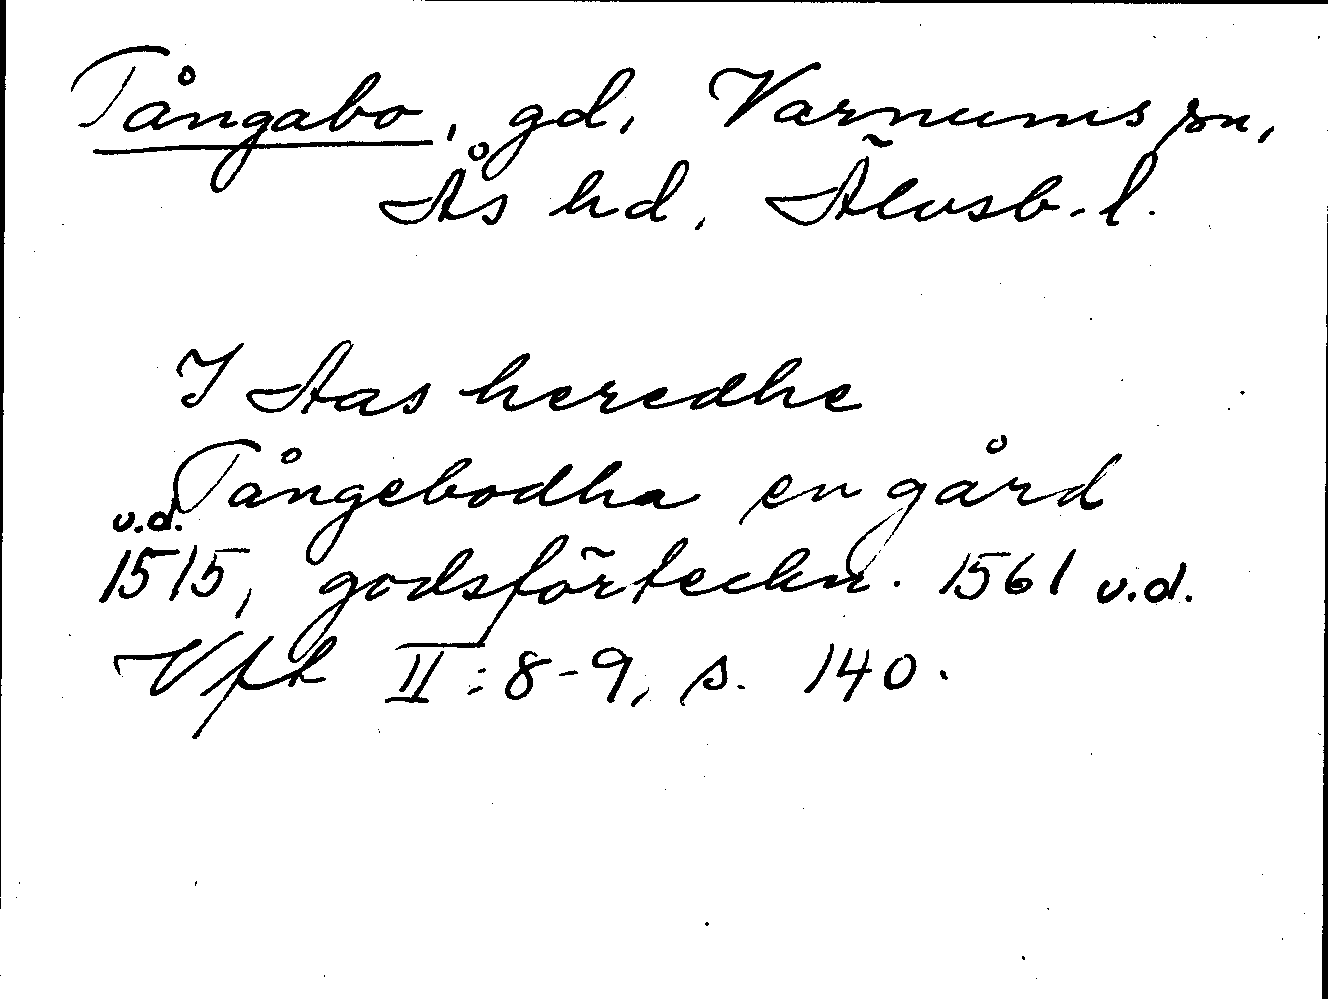 Tångabo, gd, Varnums sn,
Ås hd, Älvsb. l.
I Aas heredhe
Tångebodha en gård
u.d.
1515, godsförteckn. 1561 v.d.
Vfk II:8-9, s. 140.